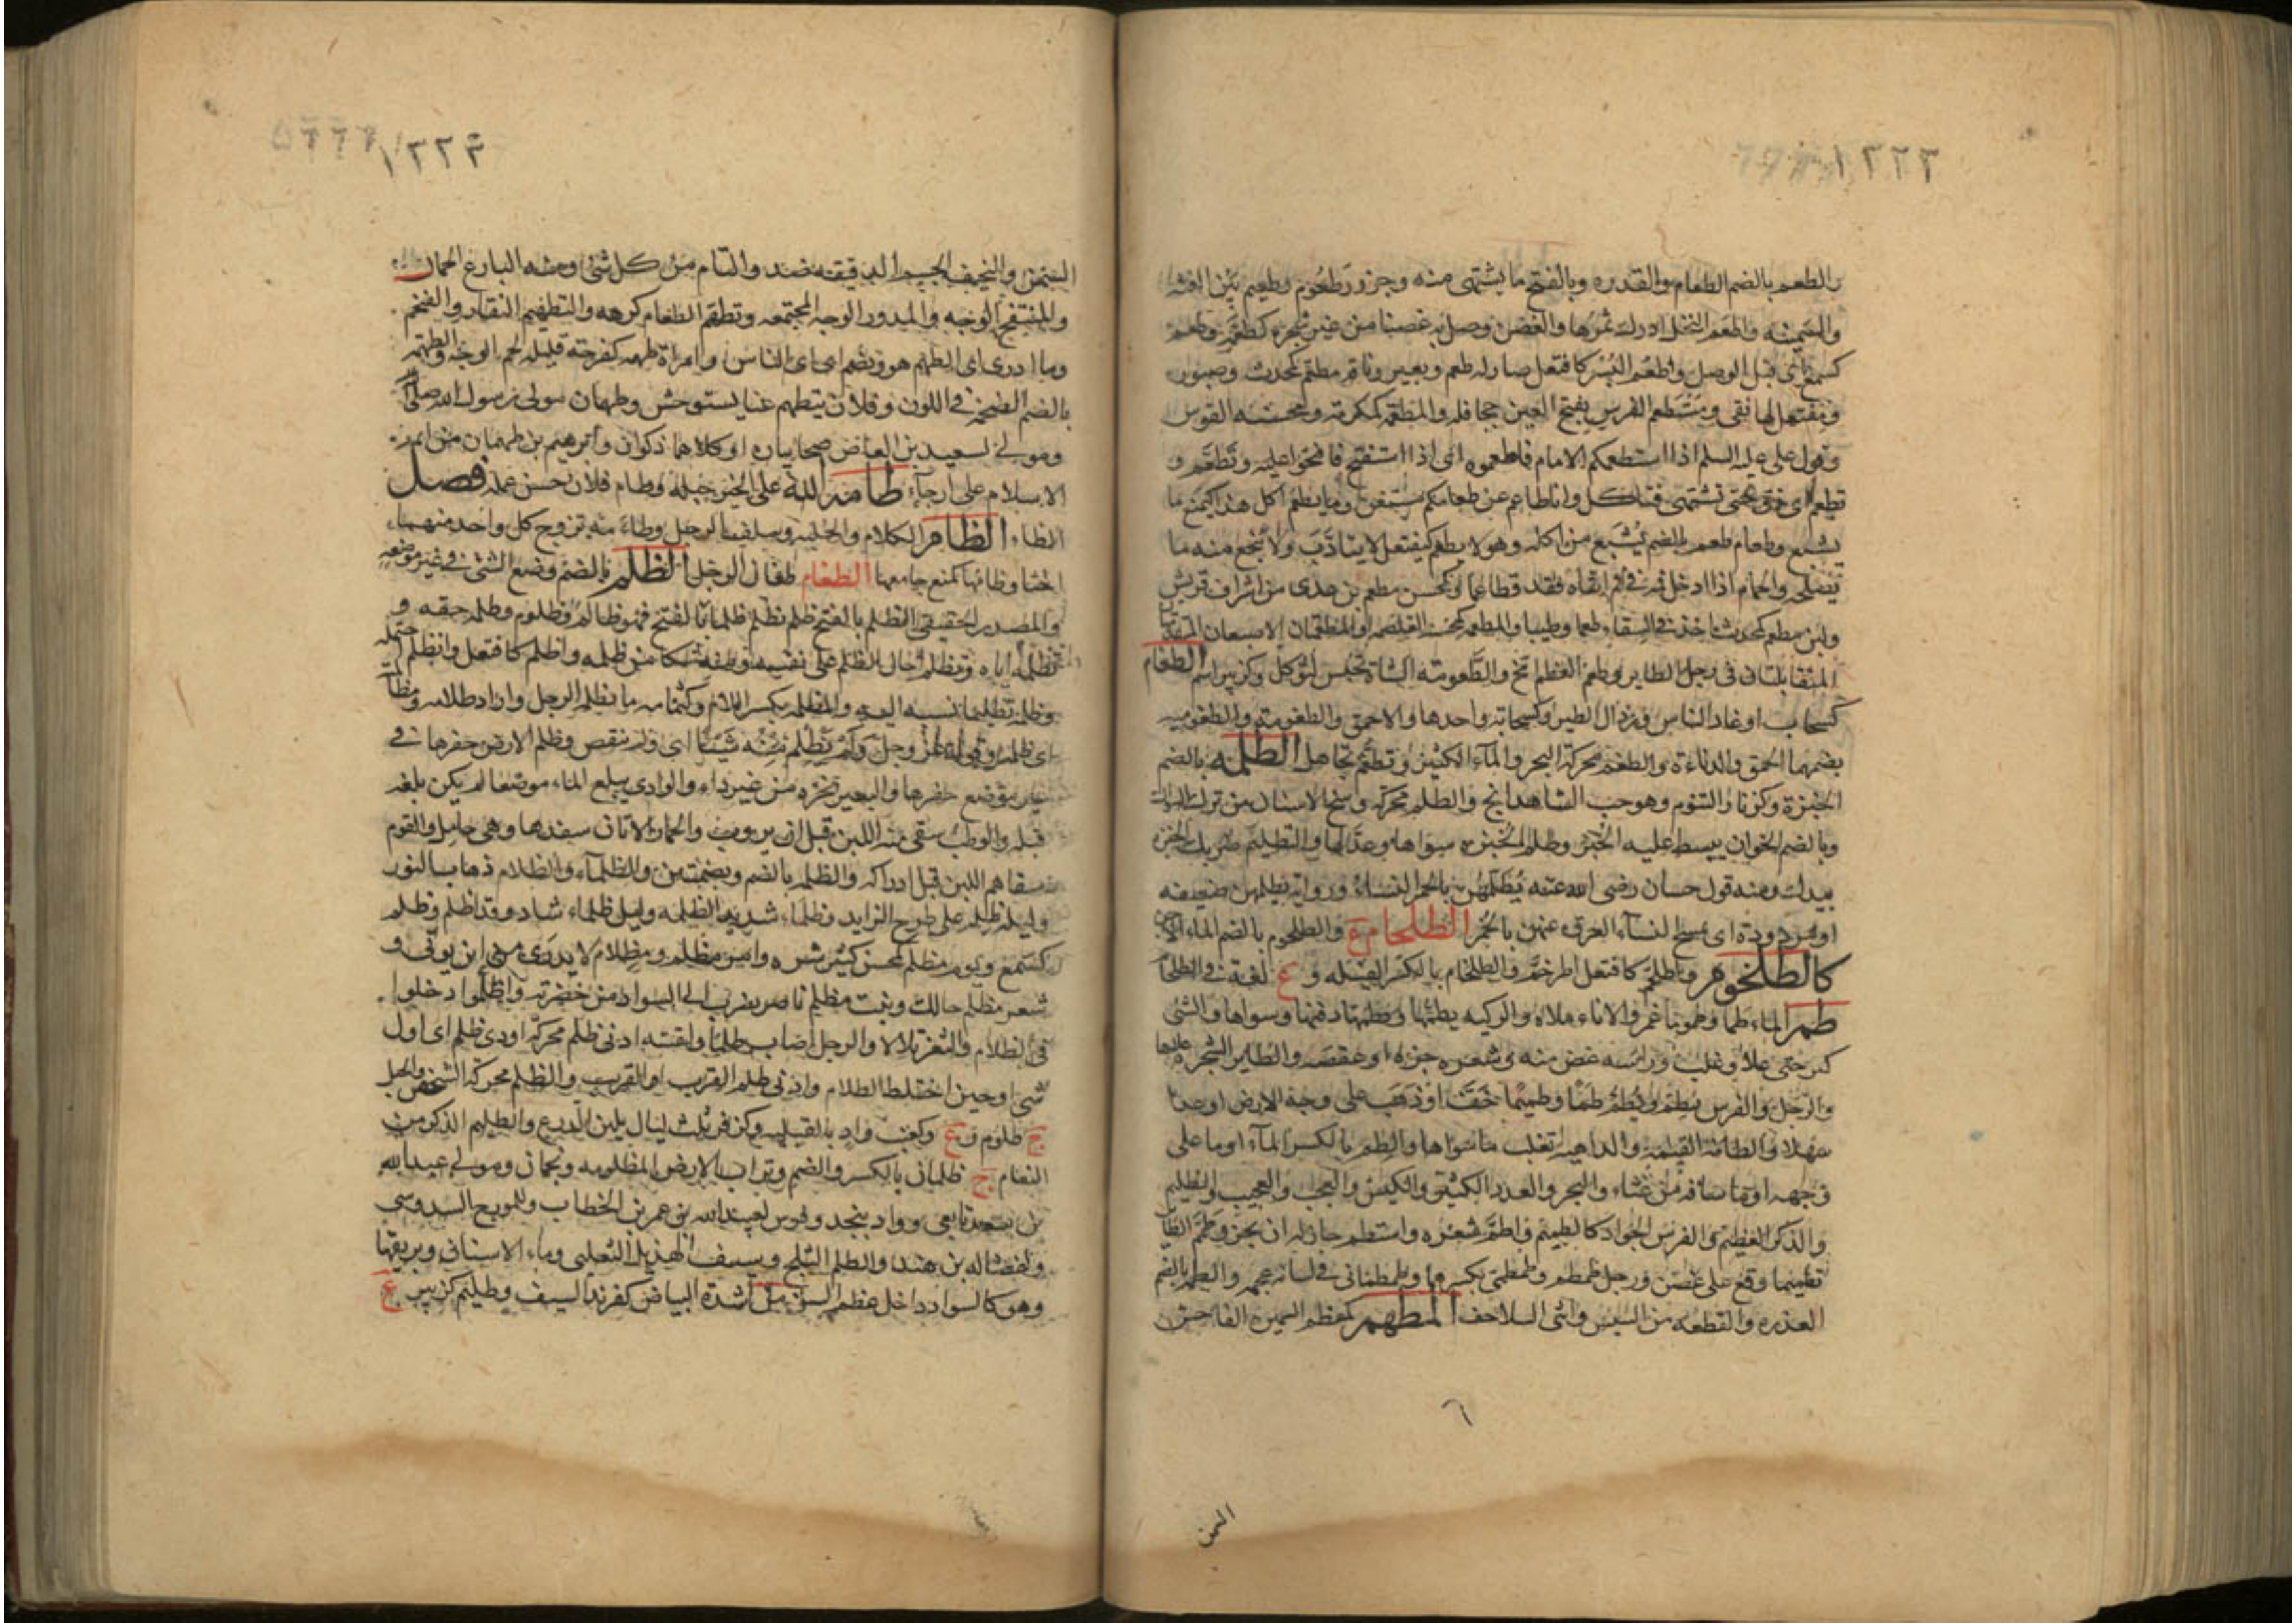 ١٢٢٢
والطعم بالضم الطعام والقدره وبالفتح ما يشتهى منه وجزور طعوم وطعيم بين الغثه
والسمينه واطعم النخل ادرك ثمرها والغصن وصل به غصنا من غير شجره كطعم وطعم
كسمع اى قبل الوصل واطعم البسر كافتعل صار له طعم وبعير وناقه مطعم كمحدث وصبور
ومفتعل لها نقى ومستطعم الفرس بفتح العين جحافله والمطعمه كمكرمه وكمحسنه القوس
وقول على عليه السلم اذا استطعمكم الامام فاطعموه اى اذا استفتح فافتحوا عليه وتطعم و
تطعم اى ذق حتى تشتهى فتاكل وانا طاعم عن طعامكم مستغن وما يطعم آكل هذا كيمنع ما
يشبع وطعام طعم بالضم يشبع من اكله وهو لا يطعم كيفتعل لا يتادب ولا ينجع فيه ما
يصلحه والحمام اذا ادخل فمه فى فم انثاه فقد تطاعما وكمحسن مطعم بن عدى من اشراف قريش
ولبن مطعم كمحدث اخذ فى السقاء طعما وطيبا والمطعمه كمحسنه الغلصمه او المطعمتان الاصبعان المتقدمتان
المتقابلتان فى رجل الطاير وطعم العظم تخ والطعومه الشاة تحبس لتوكل وكزبير اسم الطغام
كسحاب اوغاد الناس ورذال الطير وكسحابه واحدها والاحمق والطغومه والطغوميه
بضمهما الحمق والدناءة والطغم محركة البحر والمآء الكثير وتطغم تجاهل الطلمه بالضم
الخبزة وكزنار التنوم وهو حب الشاهدانج والطلم محركه وسخ الاسنان من ترك السواك
وبالضم الخوان يبسط عليه الخبز وطلم الخبزه سواها وعدلها والتطليم ضربك الخبزه
بيدك ومنه قول حسان رضى الله عنه يطلمهن بالخمر النساء ورواية يظلمهن ضعيفه
او مردودة اى تمسح النسآء العرق عنهن بالخمر الطلحام ع والطلحوم بالضم الماء الآجن
كالطلخوم واطلخم كافتعل اطرخم والطلخام بالكسر الفيله و ع لغة فى الطلحام
طم الماء طما وطموما غمر والاناء ملاه والركيه يطمها ويطمها دفنها وسواها والشئ
كثر حتى علا وغلب وراسه غض منه وشعره جزه او عقصه والطاير الشجره علاها
والرجل والفرس يطم ويطم طما وطميما خف او ذهب على وجه الارض او عدا
سهلا والطامه القيمه والداهيه تغلب ما سواها والطم بالكسر المآء او ما على
وجهه او ما ساقه من غثاء والبحر والعدد الكثير والكبس والعجب والعجيب والظليم
والذكر العظيم والفرس الجواد كالطميم واطم شعره واستطم حان له ان يجز وطمم الطاير
تطميما وقع على غصن ورجل طمطم وطمطمى بكسرهما وطمطمانى فى لسانه عجمه والطمه بالضم
العذره والقطعه من اليبس وانثى السلاحف المطهم كمعظم السمين الفاحش
٦
السمن
١٢٢٣
السمن والنحيف الجسم الدقيقه ضد والتام من كل شئ ومنه البارع الجمال
والمنتفخ الوجه والمدور الوجه المجتمعه وتطهم الطعام كرهه والتطهيم النفار والضخم
وما ادرى اى الطهم هو ويضم اى اى الناس وامراة طهمه كفرحه قليلة لحم الوجه والطهمه
بالضم الصحمه فى اللون وفلان يتطهم عنا يستوحش وطهمان مولى رسول الله صلى
ومولى لسعيد بن العاص صحابيان او كلاهما ذكوان وابرهيم بن طهمان من ائمه
الاسلام على ارجآء طامه الله على الخير جبله وطام فلان حسن عمله فصل
الظاء الظام الكلام والجلبه وسلف الرجل وظاءمه تزوج كل واحد منهما
اختا وظامها كمنع جامعها الظعام ظعان الرحل الظلم بالضم وضع الشئ فى غير موضعه
والمصدر الحقيقى الظلم بالفتح ظلم يظلم ظلما بالفتح فهو ظالم وظلوم وظلمه حقه و
تظلمه اياه وتظلم احال الظلم على نفسه ومنه شكا من ظلمه واظلم كافتعل وانظلم احتمله
وظلمه تظليما نسبه اليه والمظلمه بكسر اللام وكثمامه ما تظلمه الرجل واراد ظلامه ومظالمته
اى ظلمه وقوله عز وجل ولم تظلم منه شيئا اى ولم تنقص وظلم الارض حفرها فى
غير موضع حفرها والبعير نحره من غير داء والوادى بلغ الماء موضعا لم يكن بلغه
قبله والوطب سقى منه اللبن قبل ان يروب والحمار الاتان سفدها وهى حامل والقوم
سقاهم اللبن قبل ادراكه والظلمه بالضم وبضمتين والظلمآء والظلام ذهاب النور
وليلة ظلمه على طرح الزايد وظلماء شديدة الظلمه وليل ظلماء شاذ وقد اظلم وظلم
كسمع ويوم مظلم كمحسن كثير شره وامر مظلم ومظلام لا يدرى من اين يوتى و
شعر مظلم حالك ونبت مظلم ناضر يضرب الى السواد من خضرته واظلموا دخلوا
فى الظلام والثغر تلالا والرجل اصاب ظلما ولقيته ادنى ظلم محركة او ذى ظلم اى اول
شى او حين اختلط الظلام وادنى ظلم القرب او القريب والظلم محركة الشخص والجبل
ج ظلوم و ع وكعنب واد بالقبليه وكزفر ثلث ليال يلين الدرع والظليم الذكر من
النعام ج ظلمان بالكسر والضم وتراب الارض المظلومه ونجمان ومولى عبد الله
بن سعد تابعى وواد بنجد وفرس لعبد الله بن عمر بن الخطاب وللمورج السدوسى
ولفضاله بن هند والظلم الثلج وسيف الهذيل التغلبى وماء الاسنان وبريقها
وهو كالسواد داخل عظم السن من شدة البياض كفرند السيف وظليم كزبير ع